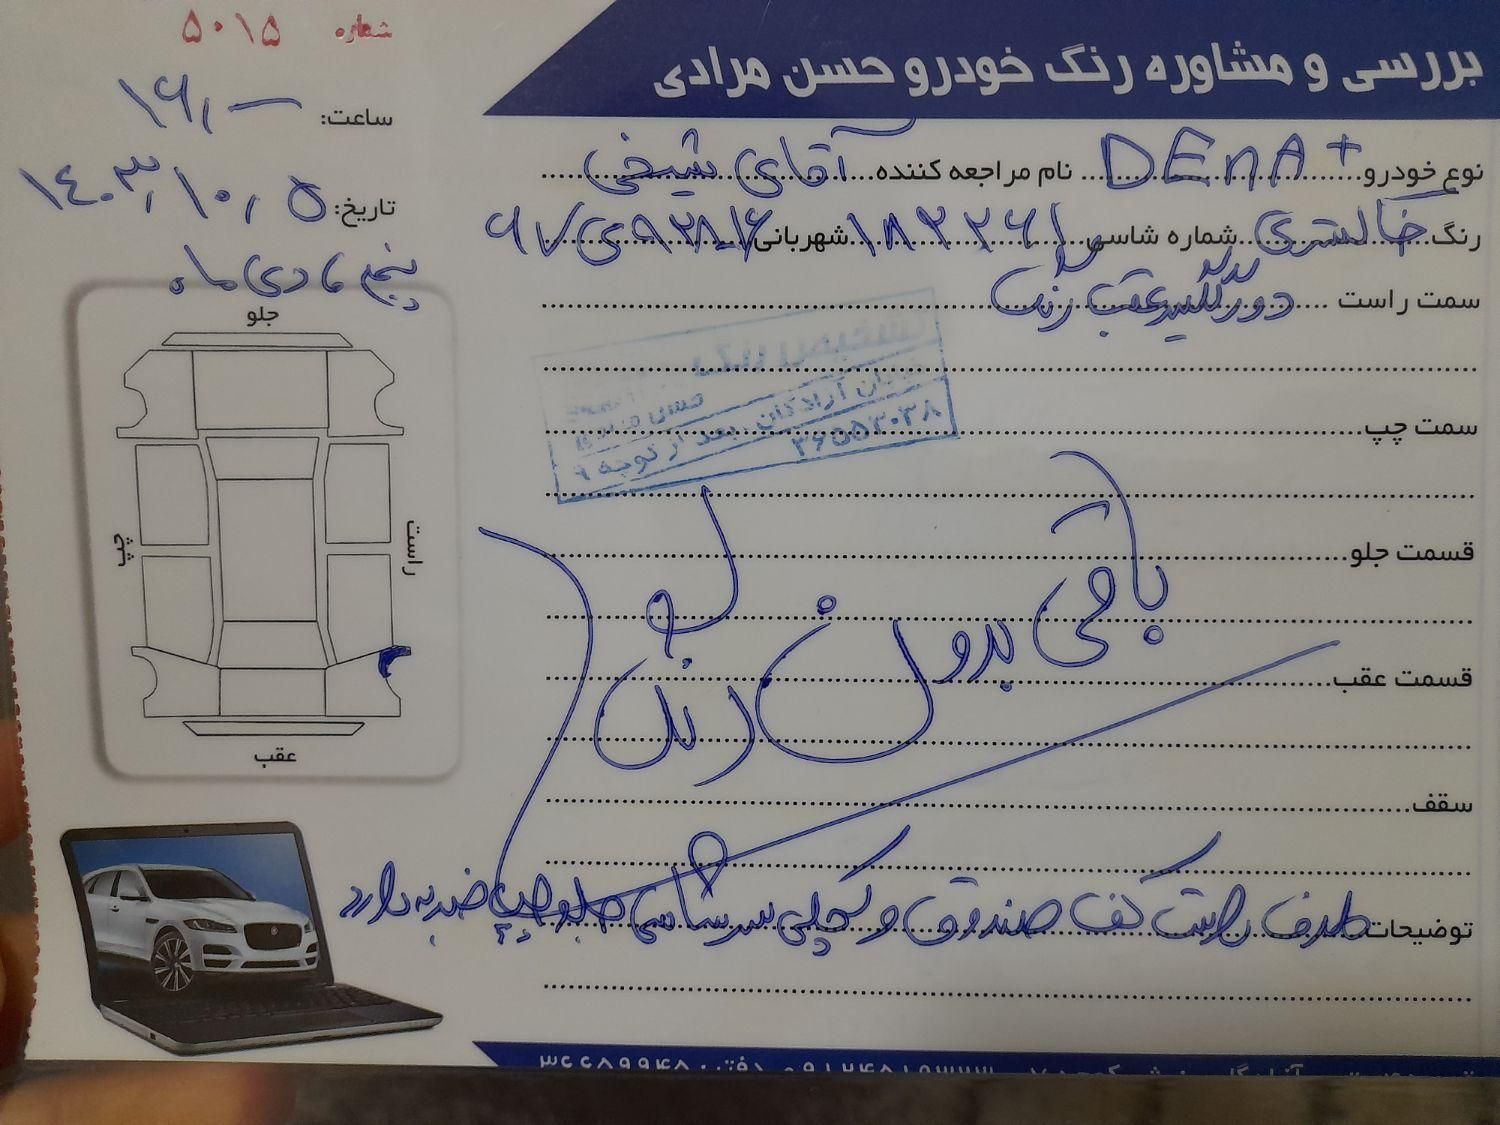 شماره ۵۰۱۵
بررسی و مشاوره رنگ خودرو حسن مرادی
ساعت: ۱۶,۰۰
تاریخ: ۱۴۰۳,۱۰,۵
پنجم دی ماه
نوع خودرو DENA+ نام مراجعه کننده آقای شیخی
رنگ خاکستری شماره شاسی ۱۸۳۲۶۱ شهربانی
سمت راست دور گلگیر عقب رنگ
سمت چپ
تشخیص رنگ
خیابان آزادگان . بعد از کوچه ۹
۳۶۵۵۳۰۳۸
قسمت جلو
باقی بدون رنگ
قسمت عقب
سقف
توضیحات طرف راست کف صندوق و سرشاسی جلو چپ ضربه دارد
جلو
راست
چپ
عقب